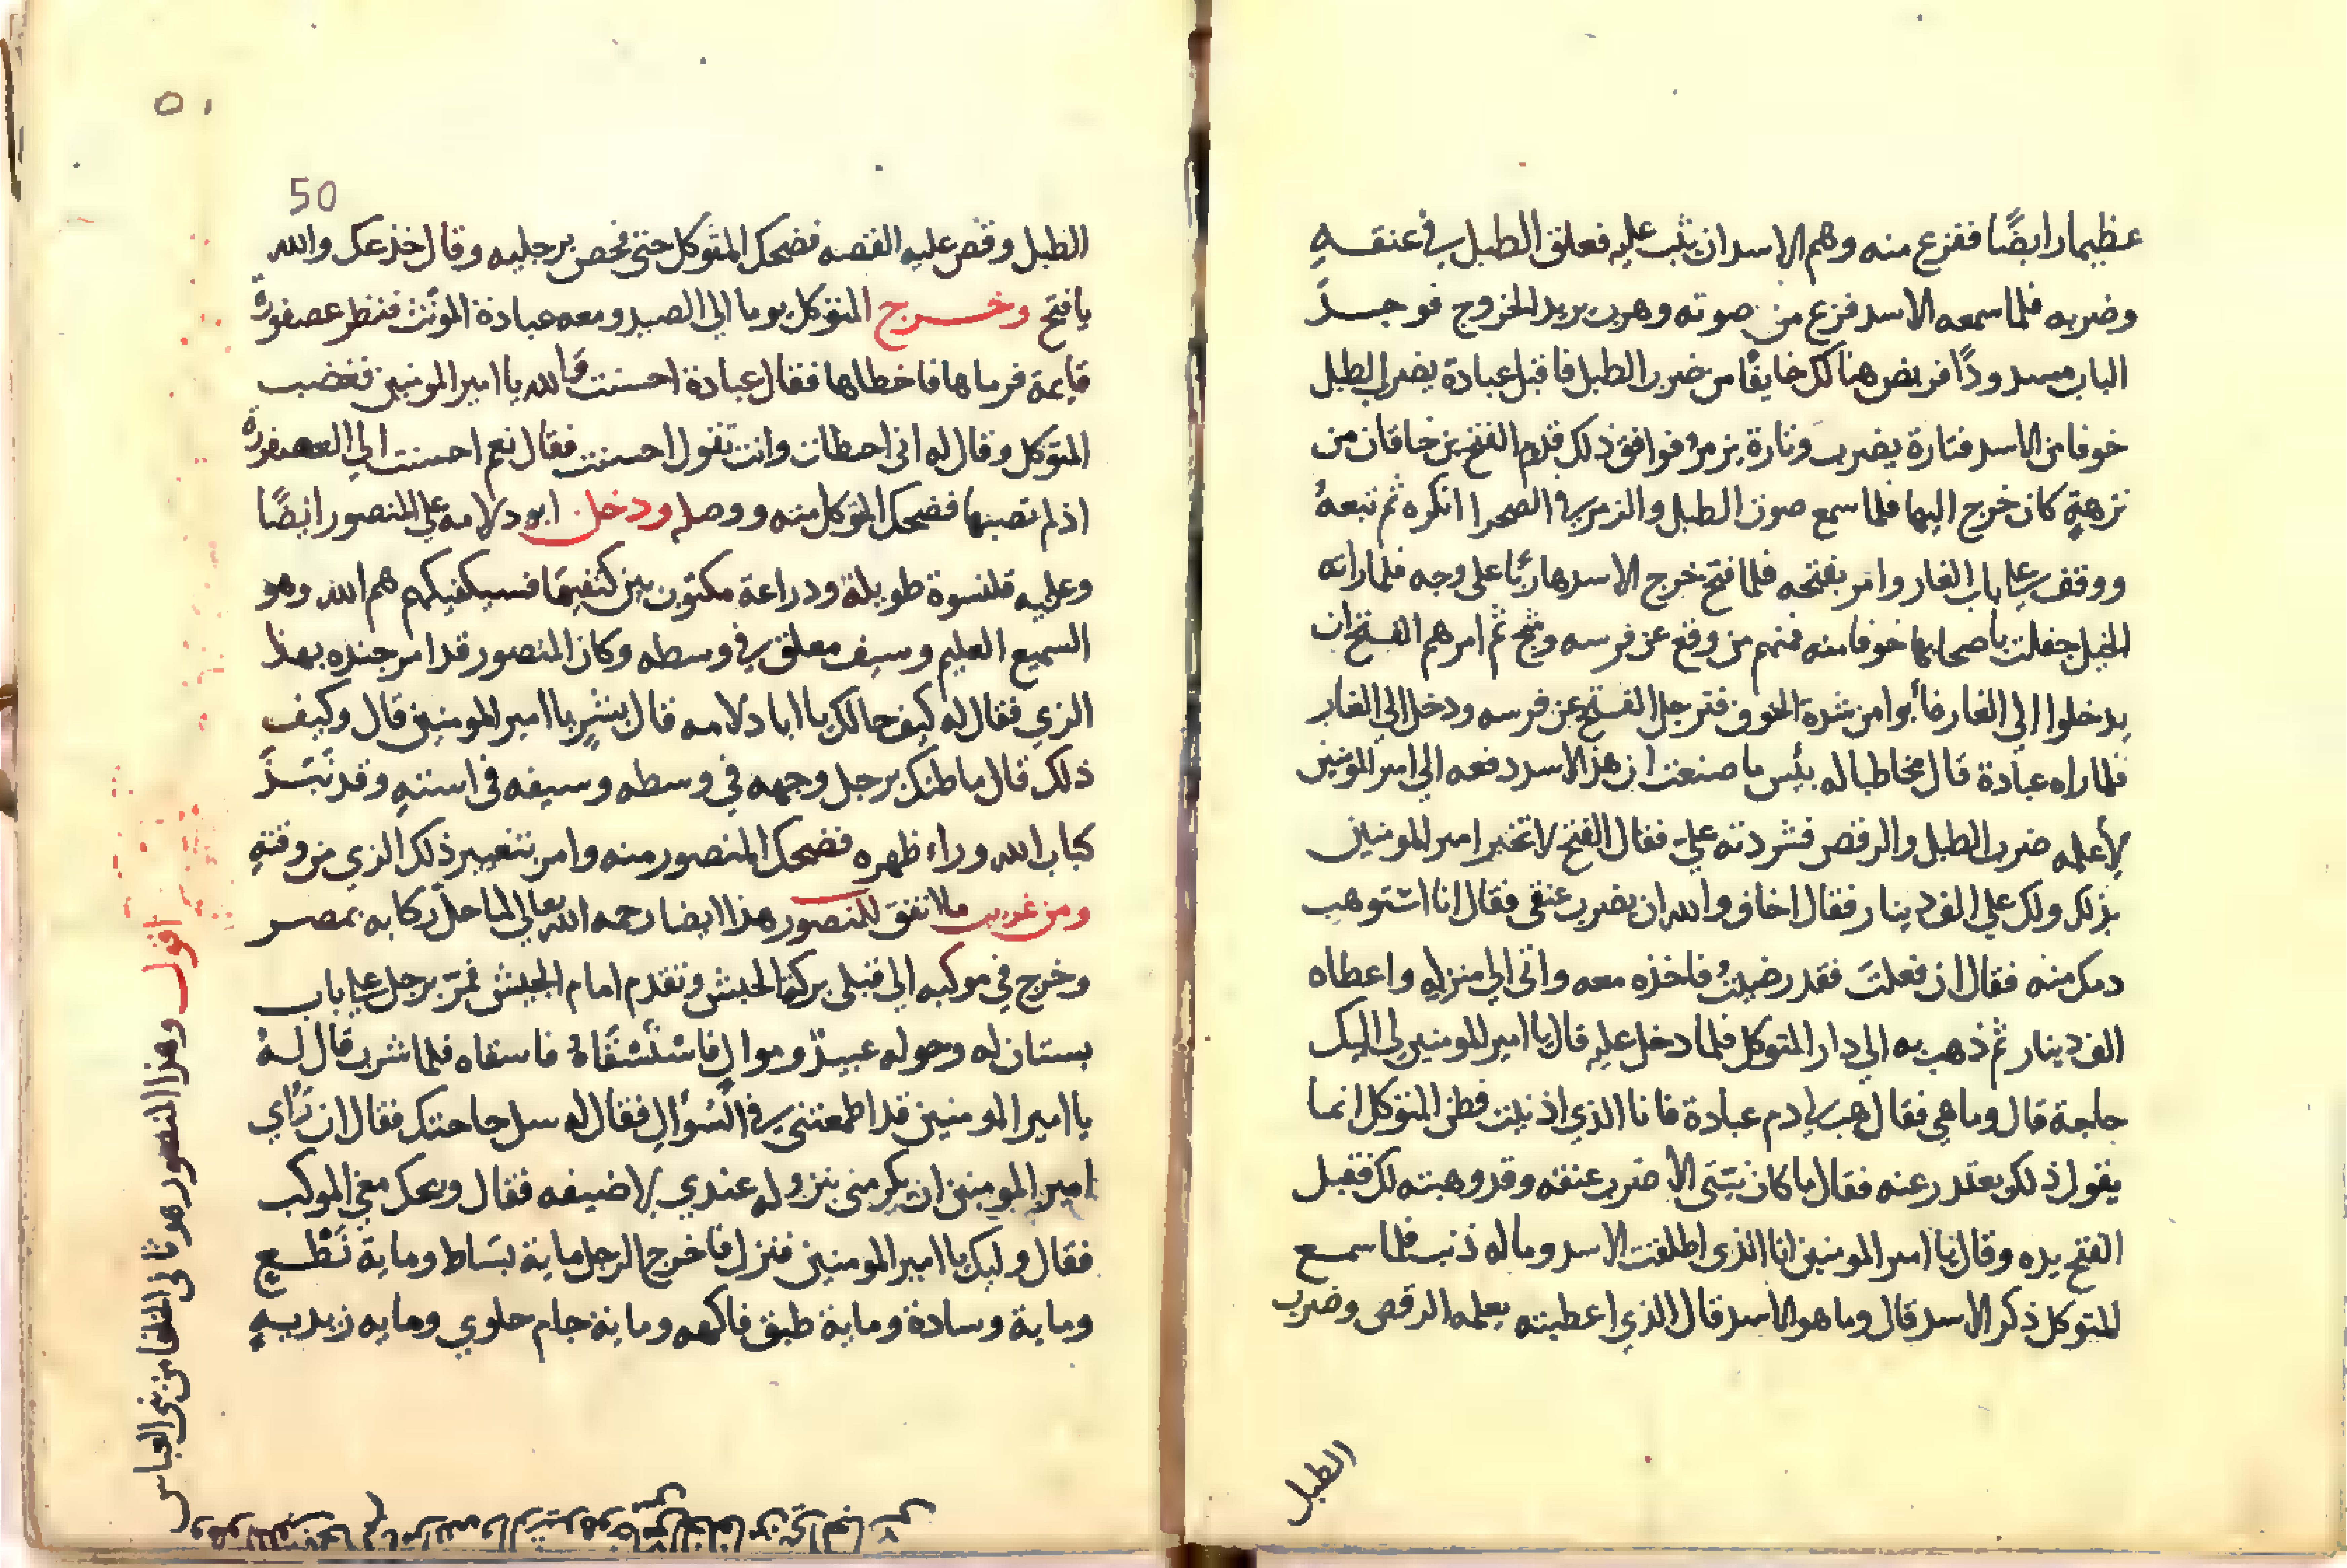 عظيما رابضًا ففزع منه وهم الاسد ان يثب عليه فعلق الطبل في عنقه
وضربه فلما سمعه الاسد فزع من صوته وهرب يريد الخروج فوجد
الباب مسدودًا فربض هنالك خايفًا من ضرب الطبل فاقبل عبادة يضرب الطبل
خوفا من الاسد فتارة يضرب وتارة يزمر فوافق ذلك قدوم الفتح بن خاقان من
نزهةٍ كان خرج اليها فلما سمع صوت الطبل والزمر في الصحرا انكره ثم تبعهُ
ووقف على باب الغار وامر بفتحه فلما فتح خرج الاسد هاربًا على وجه فلما راته
الخيل جفلت باصحابها خوفا منه فمنهم من وقع عن فرسه وشج ثم امرهم الفتح ان
يدخلوا الي الغار فأبوا من شدة الخوف فترجل الفتح عن فرسه ودخل الي الغار
فلما راه عبادة قال مخاطبا له بئس ما صنعت ان هذا الاسد دفعه الي امير المومنين
لأعلمه ضرب الطبل والرقص فشردته علي فقال الفتح لا تخبر امير المومنين
بذلك ولك علي الف دينار فقال اخاف والله ان يضرب عنقي فقال انا استوهب
دمك منه فقال ان فعلتَ فقد رضيتُ فاخذه معه واتى الي منزله واعطاه
الف دينار ثم ذهب به الي دار المتوكل فلما دخل عليه قال يا امير المومنين لي اليك
حاجة قال وما هي فقال هب لي دم عبادة فانا الذي اذنبت فظن المتوكل انما
يقول ذلك يعتذر عنه فقال ما كان نيتي الا ضرب عنقه وقد وهبته لك فقبل
الفتح يده وقال يا امير المومنين انا الذي اطلقت الاسد وما له ذنب فلما سمع
المتوكل ذكر الاسد قال وما هو الاسد قال الذي اعطيته يعلمه الرقص وضرب
الطبل
50
الطبل وقص عليه القصه فضحك المتوكل حتى فحص برجليه وقال خدعك والله
يا فتح وخرج المتوكل يوما الي الصيد ومعه عبادة المونث فنظر عصفورة
قايمة فرماها فاخطاها فقال عبادة احسنت والله يا امير المومنين فغضب
المتوكل وقال له اني اخطات وانت تقول احسنت فقال نعم احسنت الي العصفورة
اذ لم تصبها فضحك المتوكل منه ووصله ودخل ابو دلامه علي المنصور ايضًا
وعليه قلنسوة طويلة ودراعة مكتوب بين كتفيها فسيكفيكهم الله وهو
السميع العليم وسيف معلق في وسطه وكان المنصور قد امر جنده بهذا
الزي فقال له كيف حالك يا ابا دلامه قال بشرٍ يا امير المومنين قال وكيف
ذلك قال ما ظنك برجل وجهه في وسطه وسيفه في استه وقد نَبَذَ
كتاب الله وراء ظهره فضحك المنصور منه وامر بتغيير ذلك الزي من وقته
ومن غريب ما اتفق للمنصور هذا ايضا رحمه الله تعالي لما حل ركابه بمصر
وخرج في موكبه الي قبلي بركة الحبش وتقدم امام الجيش فمرّ برجل علي باب
بستان له وحوله عبيدٌ وموالٍ فاسْتَسْقَاهُ فاسقاه فلما شرب قال لهُ
يا امير المومنين قد اطمعتني في السُوَّالِ فقال له سل حاجتك فقال ان رَأي
امير المومنين ان يكرمني بنزوله عندي لاضيفه فقال ويحك معي الموكب
فقال وليك يا امير المومنين فنزل فاخرج الرجل ماية بسَاط وماية نَطْعٍ
وماية وسادة وماية طبق فاكهه وماية جام حلوي ومايه زبديه
اقول وهذا المنصور هو ثاني الخلفا من بني العباس